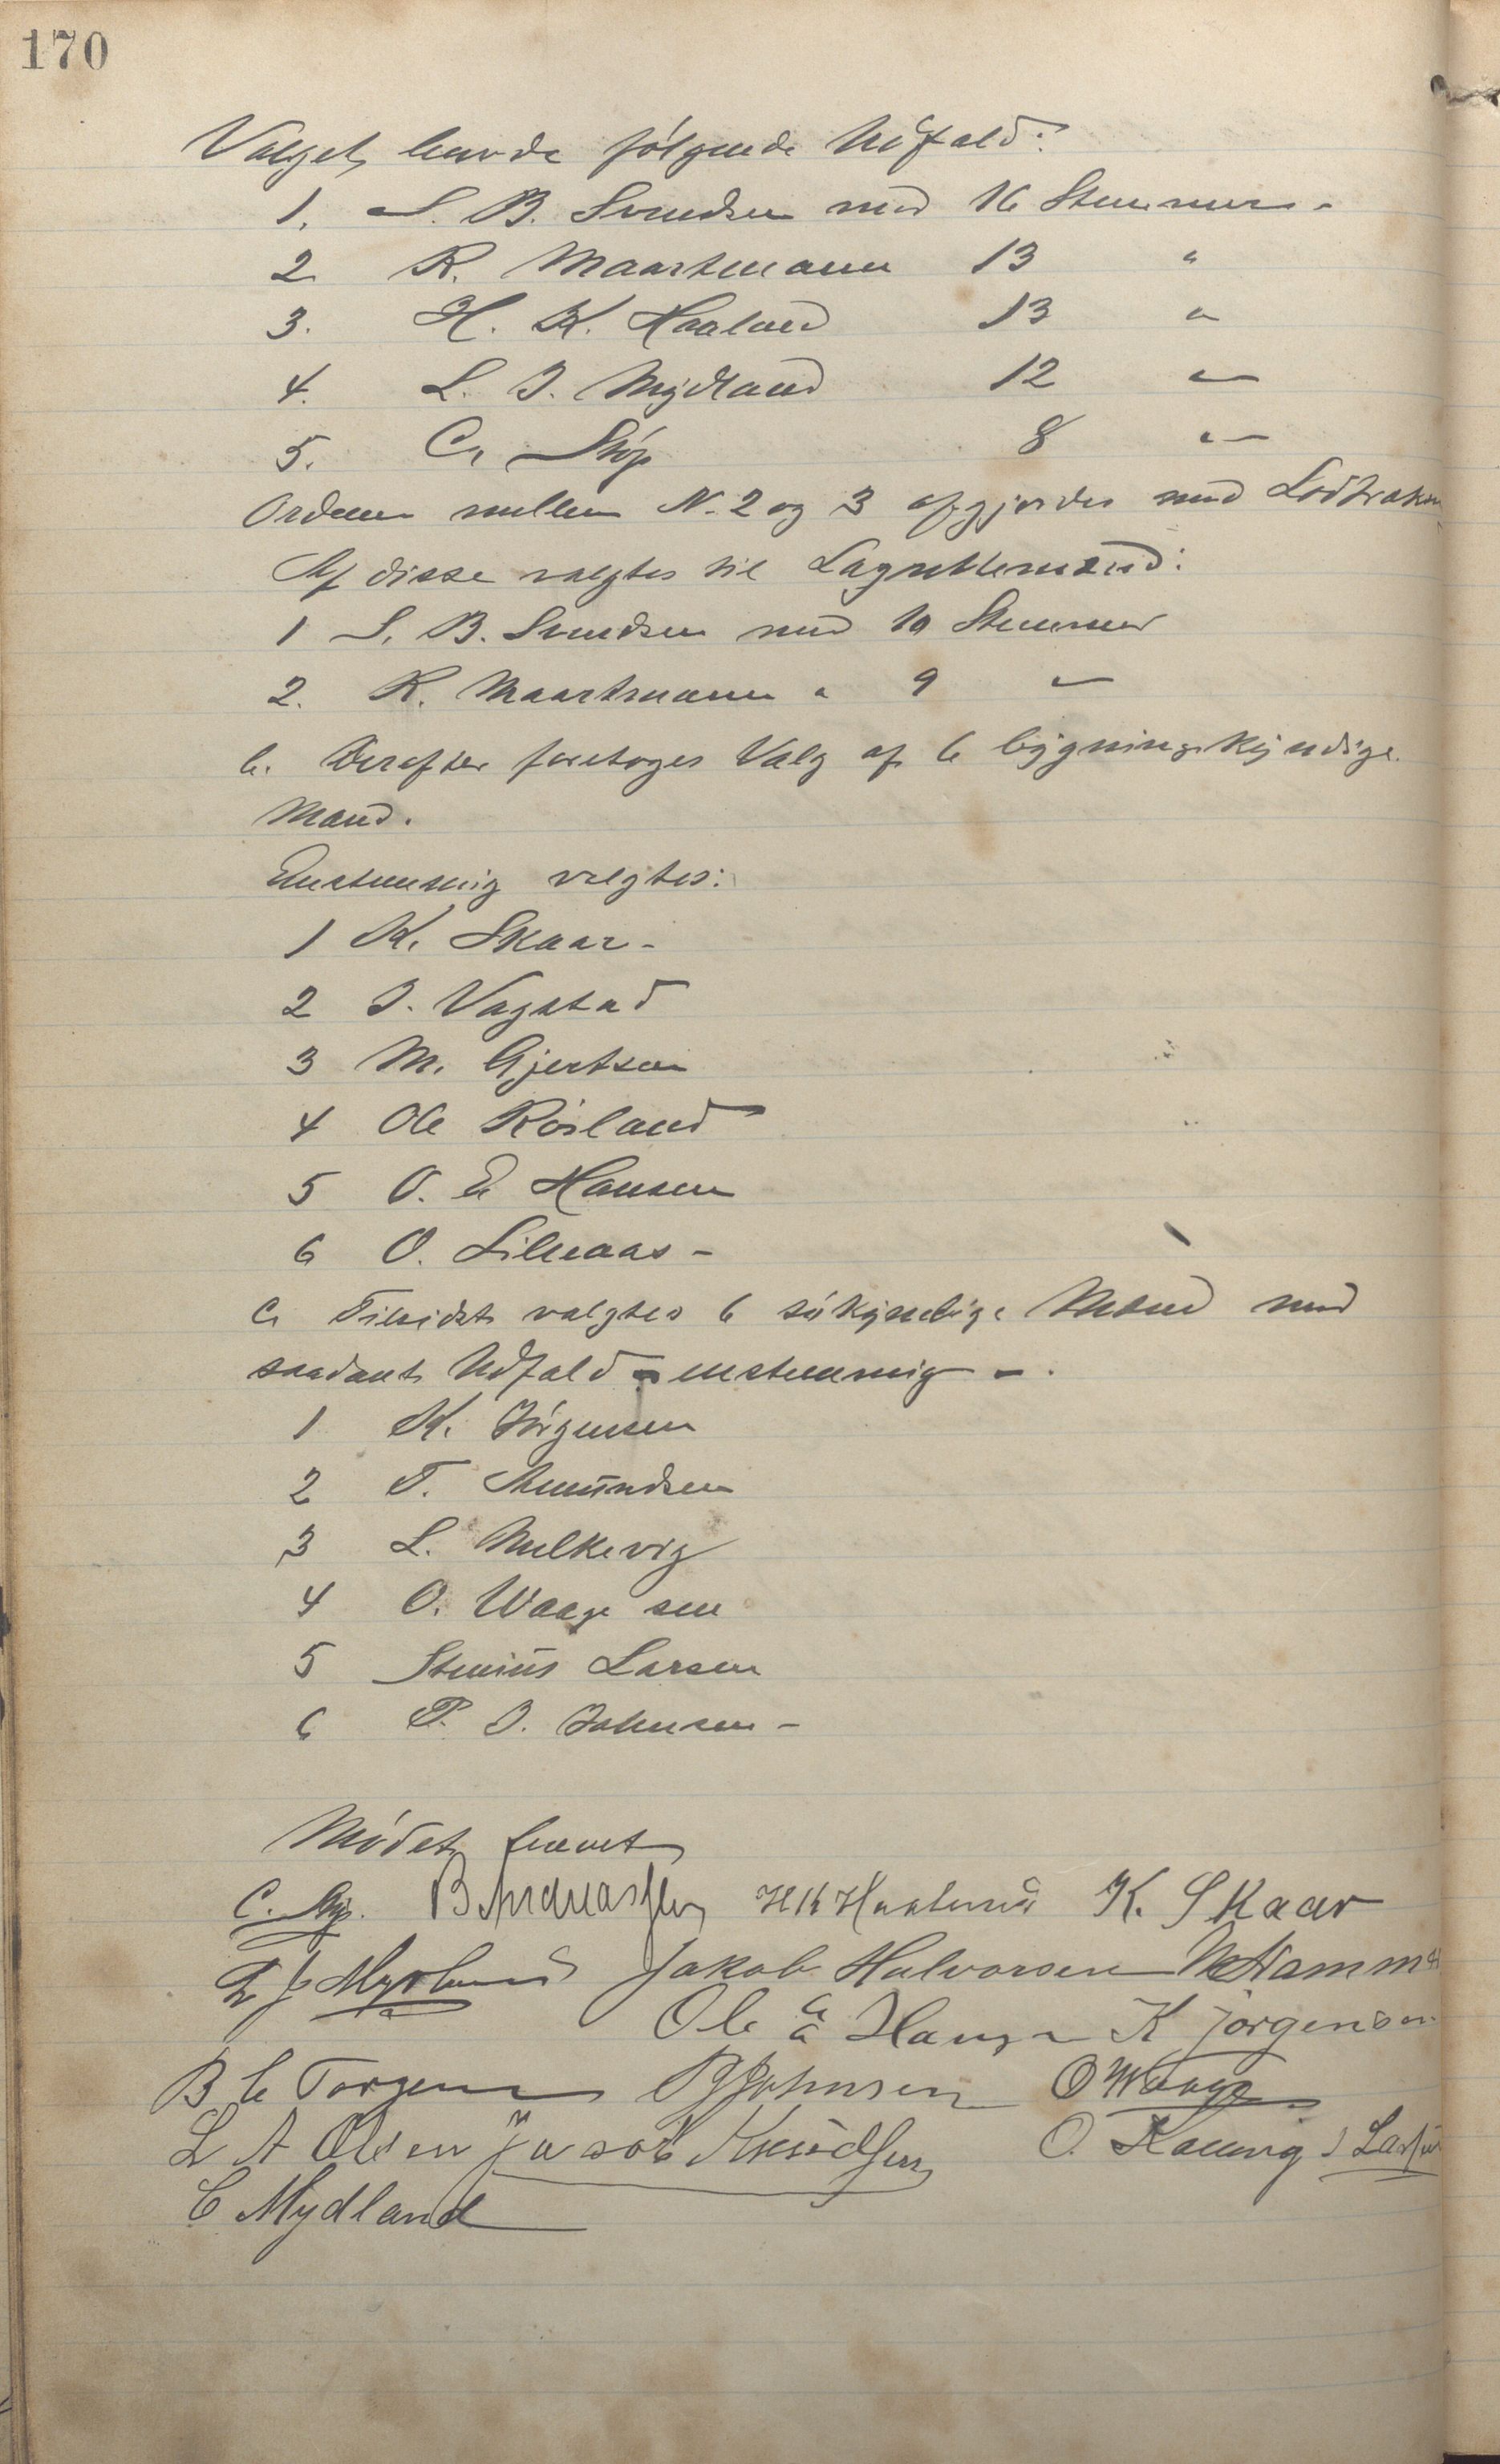 170
Valget havde følgende Udfald:
1. S. B. Svendsen med 16 Stemmer -
2 R. Maartmann 13 "
3. H. K. Haaland 13 "
4. L. J. Mydland 12 "
5. C. Stöp 8 "
Ordenen mellem N. 2 og 3 afgjordes med Lodtrækn
Af disse valgtes til Lagrettemænd:
1 S. B. Svendsen med 10 Stemmer
2. R. Maartmann " 9 "
b. Derefter foretoges Valg af 6 bygningskyndige
Mænd.
Enstemmig valgtes:
1 K. Skaar -
2 J. Vagstad
3 M. Gjertsen
4 Ole Rösland
5 O. E Hansen
6 O. Lilleaas -
c. Tilsidst valgtes 6 søkyndige Mænd med
saadant Udfald - enstemmig -.
1 K. Jörgensen
2 T. Amundsen
3 L. Melkevig
4 O. Waage sen
5 Stenius Larsen
6 P. J. Johnsen -
Mödet hævet
C. Stöp. B. Andreassen H K Haaland K. Skaar
L J Mydland Jakob Halvorsen Hamm
Ole E Hansen K Jörgensen
B C Torgersen P J Johnsen O Waage
L A Olsen Jacob Knudsen O. S Larsen
C Mydland